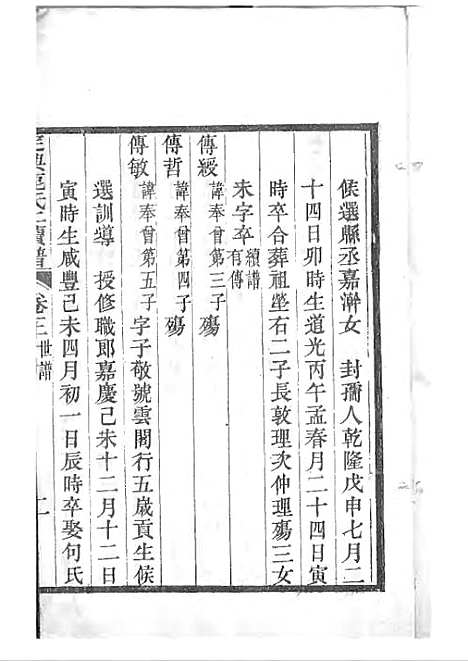 候選縣丞嘉澣女　封孺人乾隆戊申七月二
十四日卯時生道光丙午孟春月二十四日寅
時卒合葬祖塋右二子長敦理次仲理殤三女
未字卒續譜有傳
傳綬諱奉曾第三子殤
傳哲諱奉曾第四子殤
傳敏諱奉曾第五子　字子敬號雲閣行五歲貢生候
選訓導　授修職郎嘉慶己未十二月十二日
寅時生咸豐己未四月初一日辰時卒娶句氏
氏續譜　卷三　世譜